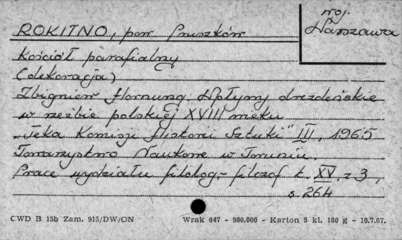 ROKITNO, pow. Pruszków
woj. Warszawa
Kościół parafialny
(dekoracja)
Zbigniew Hornung. Wpływy drezdeńskie
w rzeźbie polskiej XVIII wieku
„Teka Komisji Historii Sztuki" III, 1965
Towarzystwo Naukowe w Toruniu.
Prace wydziału filolog.-filozof t. XV, z 3,
s. 264
CWD B 15b Zam. 915/DW/ON Wrak 647 - 980.000 - Karton 5 kl. 180 g - 10.7.67.